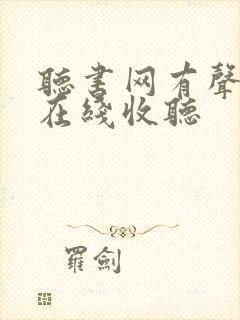 聽書网有聲
在綫收聽
羅劍